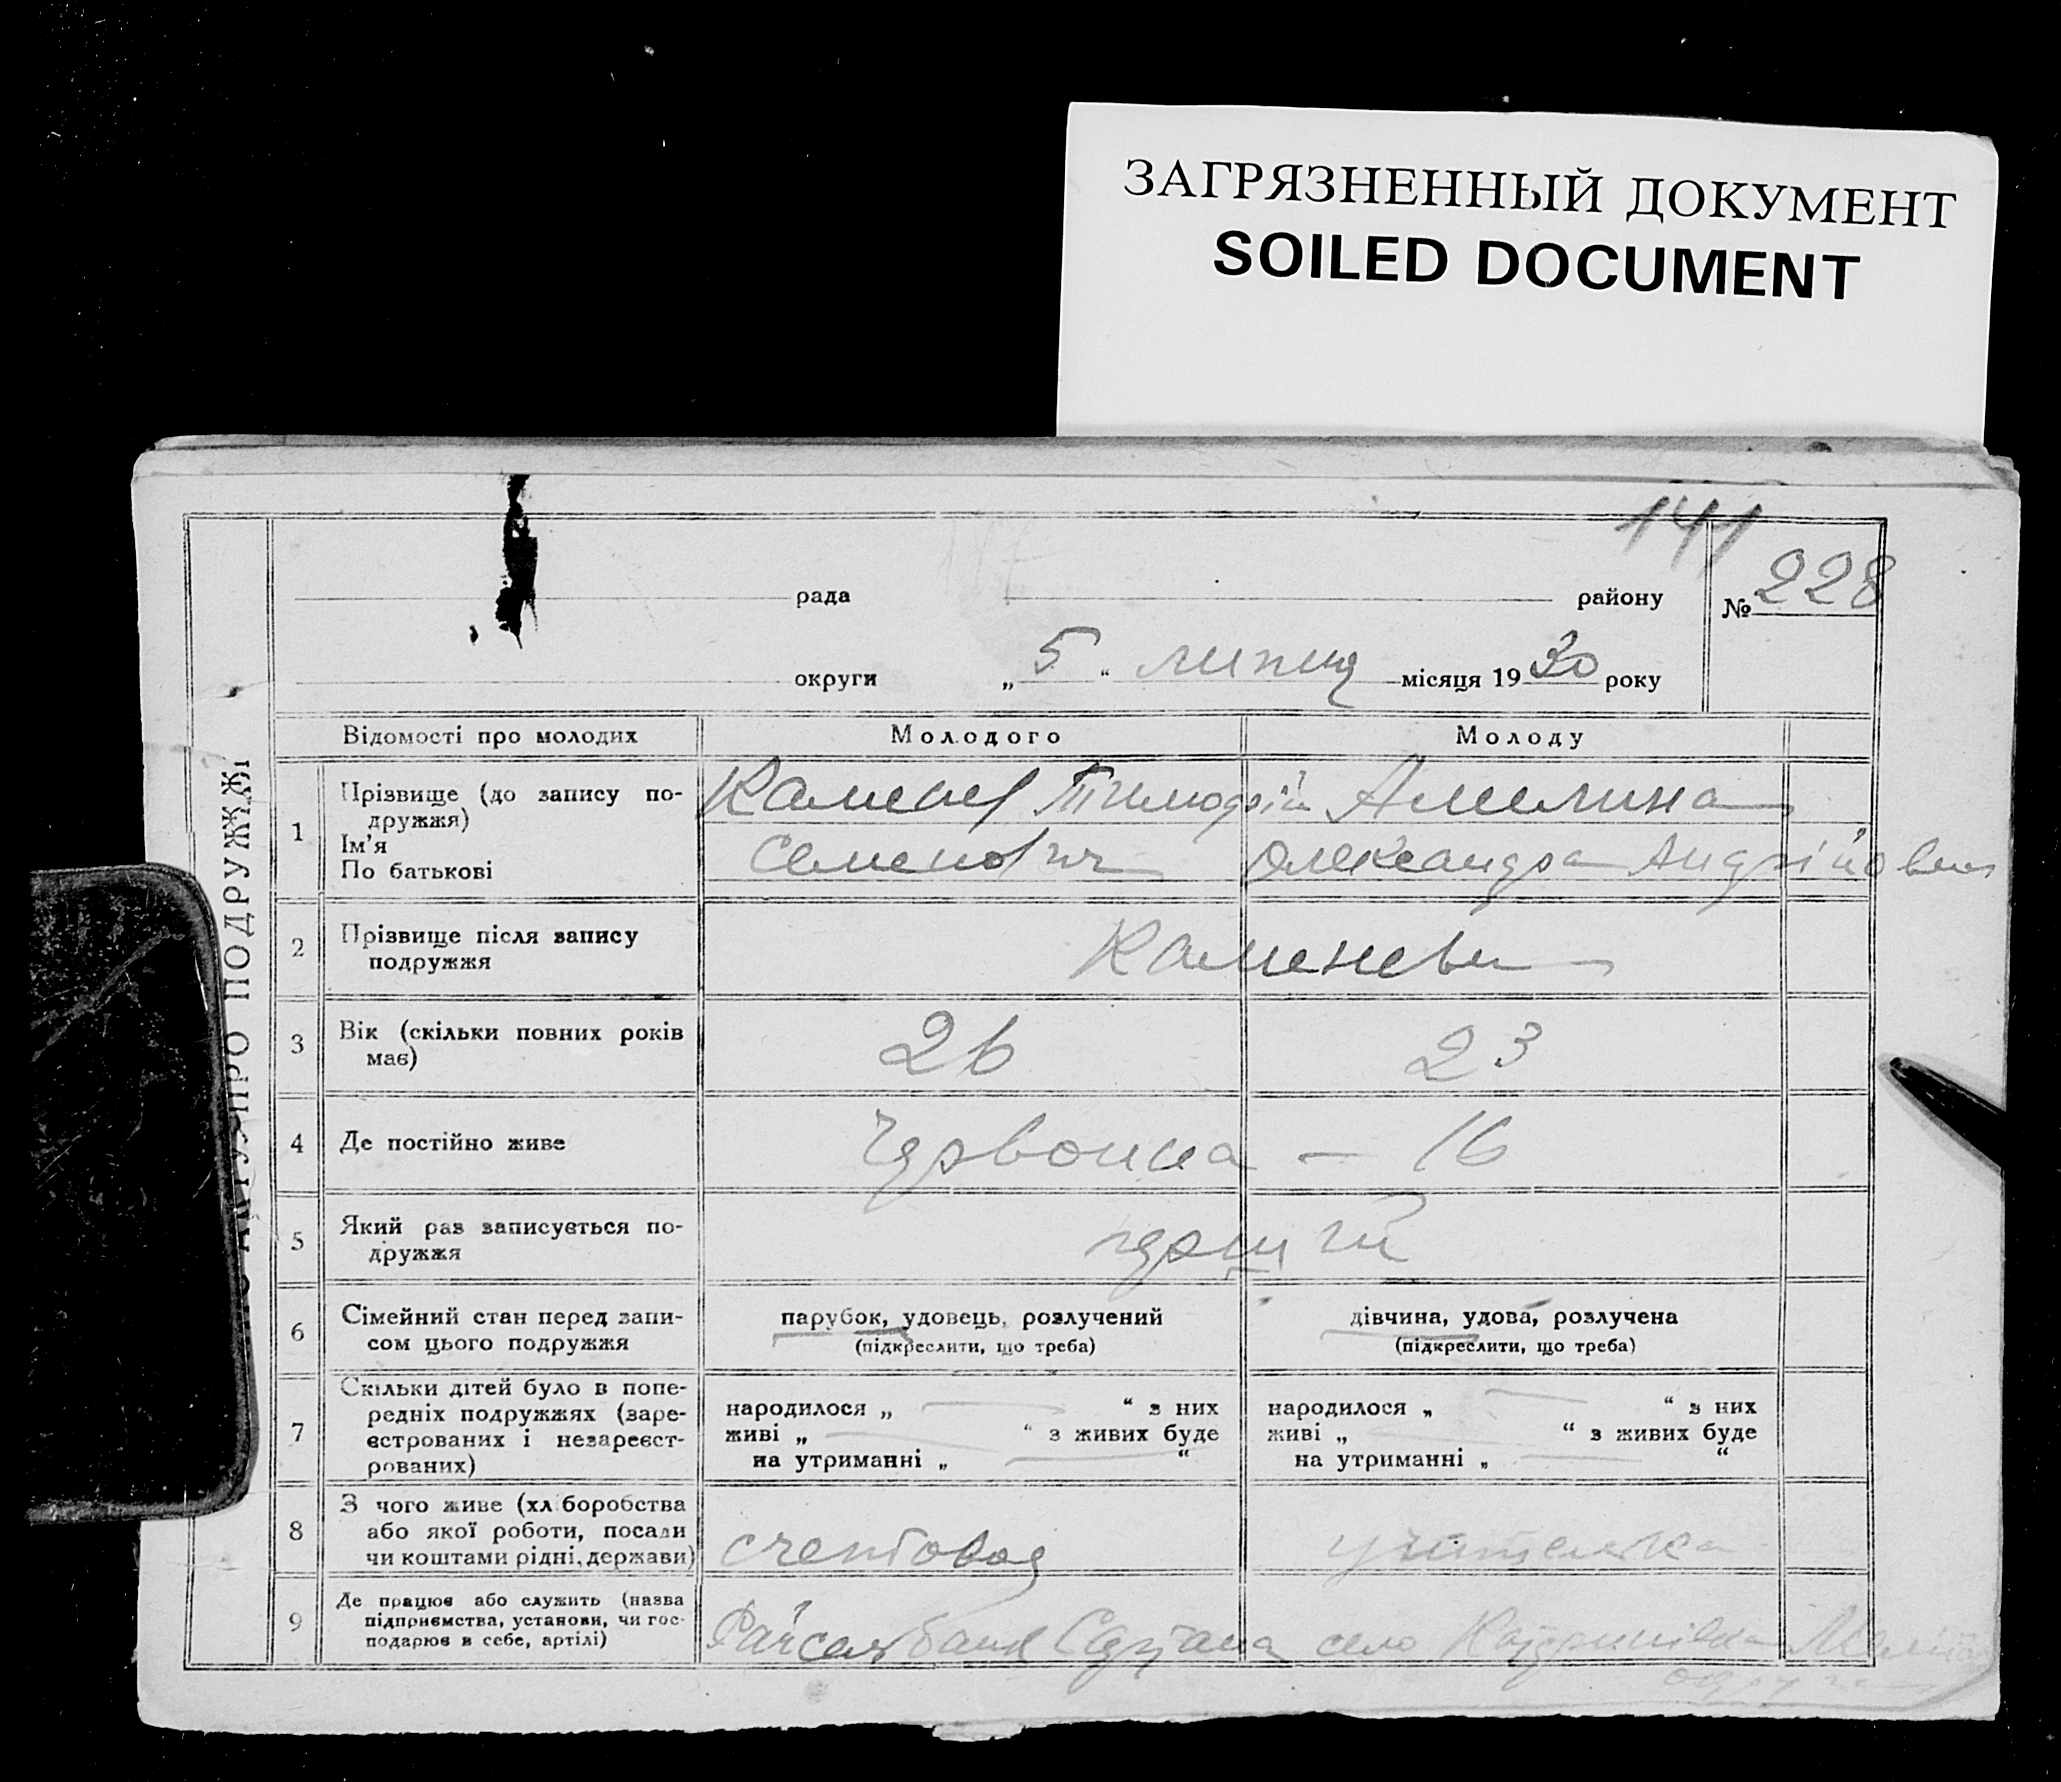 ЗАГРЯЗНЕННЫЙ ДОКУМЕНТ
SOILED DOCUMENT
141
рада району № 228
округи „ 5 “ липця місяця 1930 року
ПРО ПОДРУЖЖЯ
Відомості про молодих Молодого Молоду
1 Прізвище (до запису по-
дружжя)
Ім’я
По батькові
Каменев Тимофій
Семенович
Амелина
Олександра Андрійовна
2 Прізвище після запису
подружжя
Каменеви
3 Вік (скільки повних років
має)
26 23
4 Де постійно живе Червонна – 16
5 Який раз записується по-
дружжя
перший
6 Сімейний стан перед запи-
сом цього подружжя
парубок, удовець, розлучений
(підкреслити, що треба)
дівчина, удова, розлучена
(підкреслити, що треба)
7 Скільки дітей було в попе-
редніх подружжях (заре-
єстрованих і незареєст-
рованих)
народилося „ — “ з них
живі „ — “ з живих буде
на утриманні „ — “
народилося „ — “ з них
живі „ — “ з живих буде
на утриманні „ — “
8 З чого живе (хліборобства
або якої роботи, посади
чи коштами рідні, держави)
счетовод учителька
9 Де працює або служить (назва
підприємства, установи, чи гос-
подарює в себе, артілі)
село